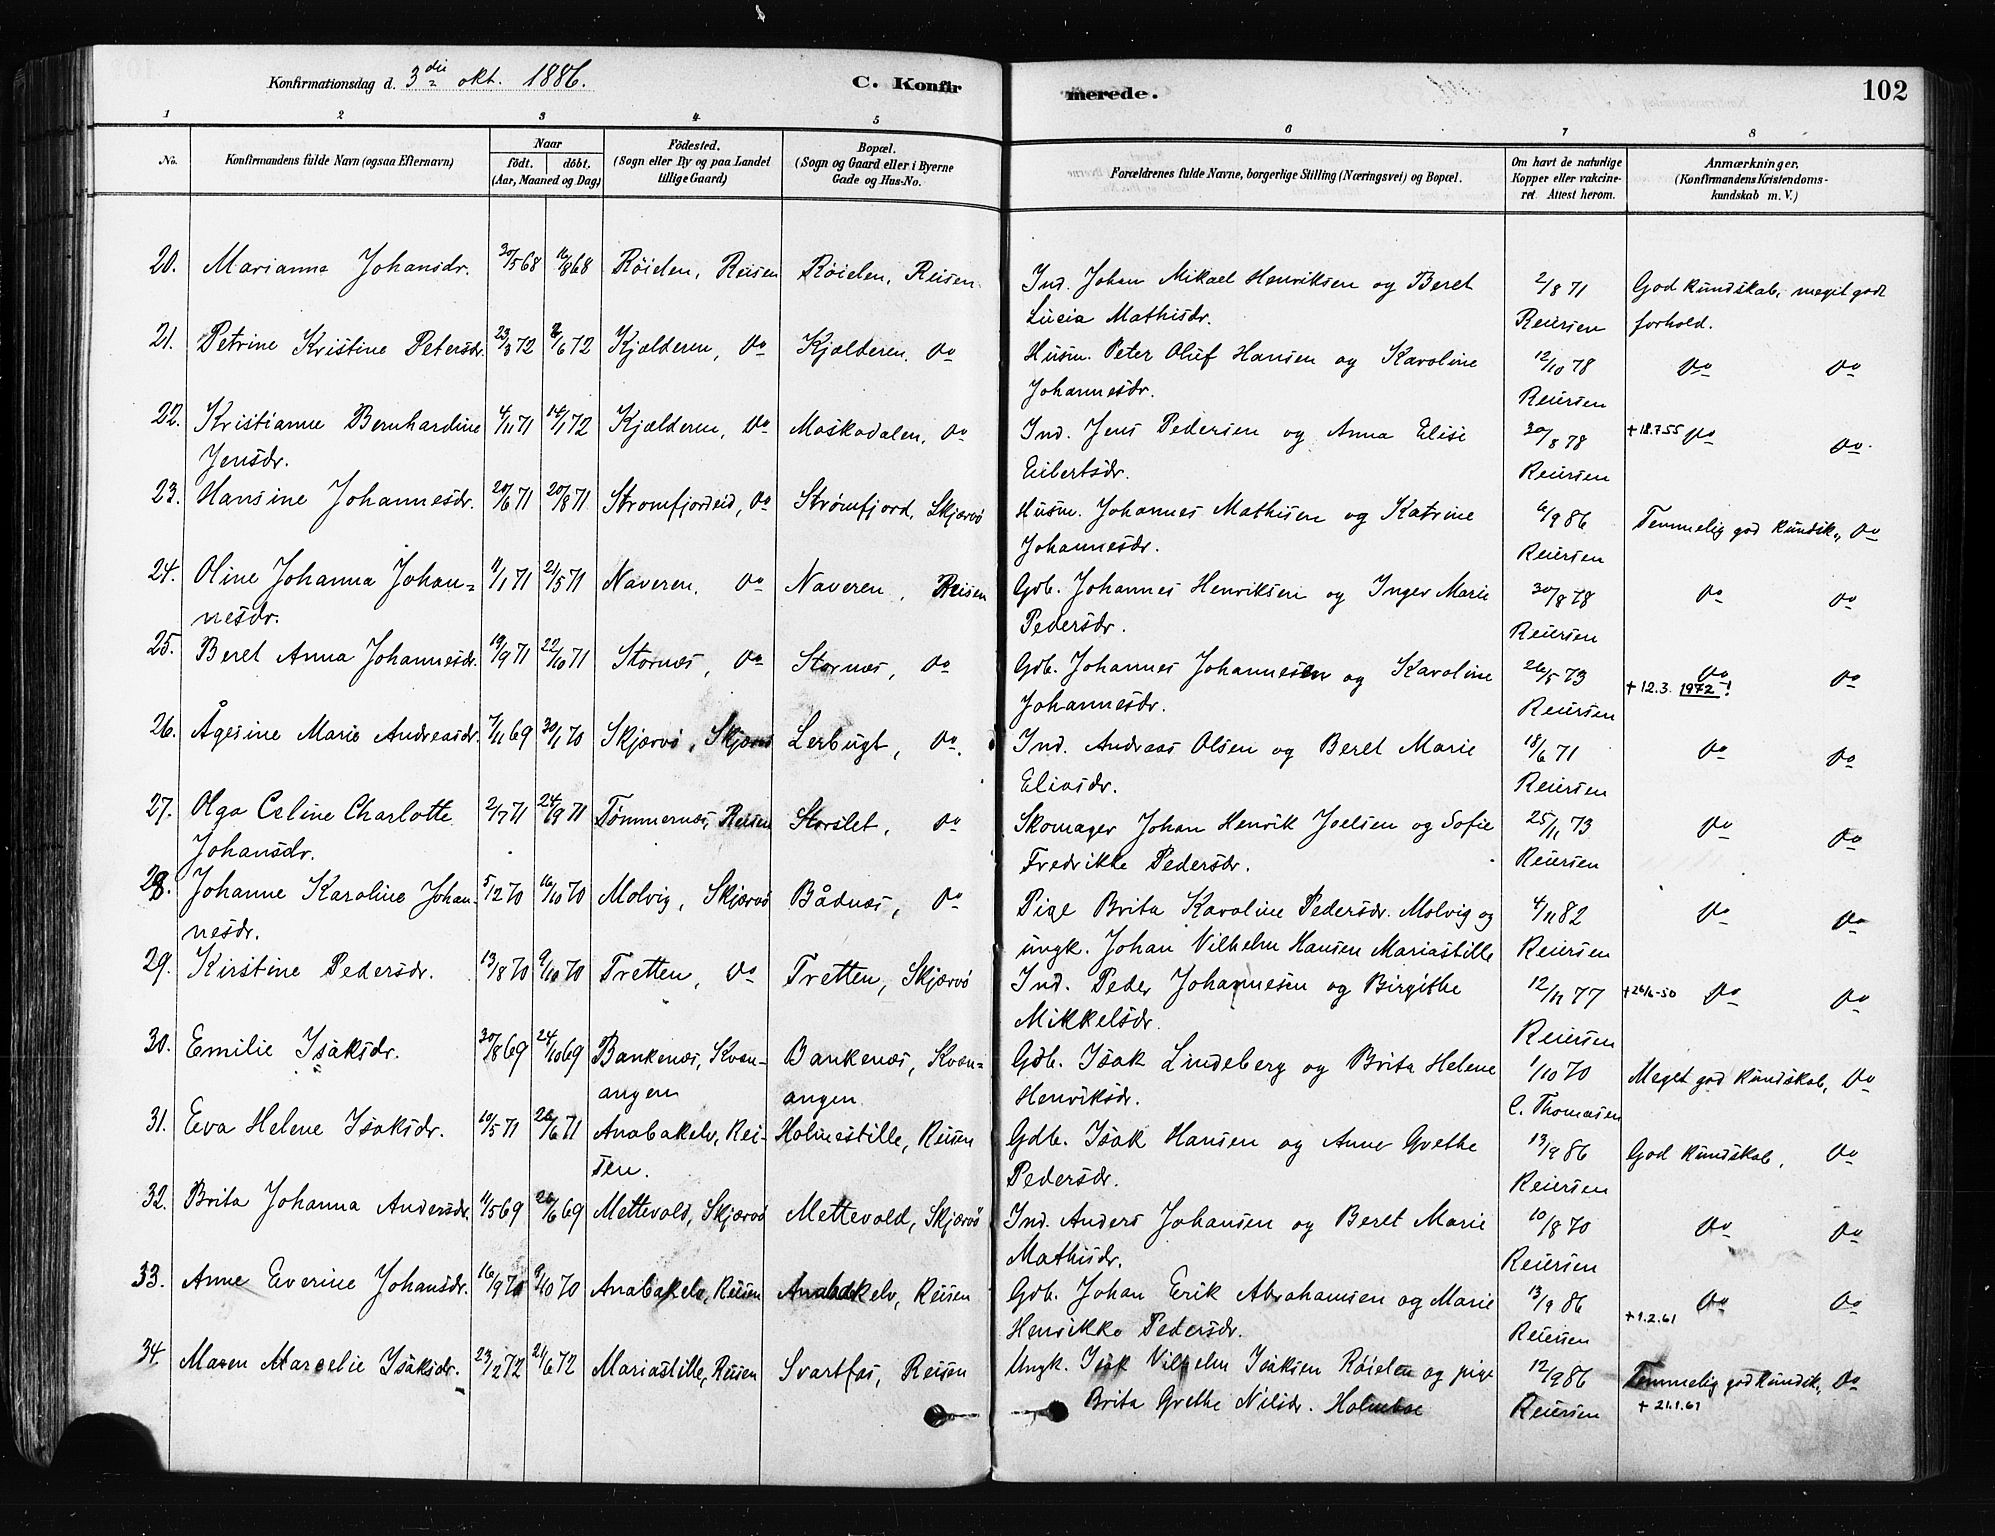 Konfirmationsdag d. 3die okt. 1886.
C. Konfirmerede.
102
1 2 3 4 5 6 7 8
No. Konfirmandens fulde Navn (ogsaa Efternavn) Naar födt. döbt. (Aar, Maaned og Dag) Födested. (Sogn eller By og paa Landet tillige Gaard) Bopæl. (Sogn og Gaard eller i Byerne Gade og Hus-No. Forældrenes fulde Navne, borgerlige Stilling (Næringsvei) og Bopæl. Om havt de naturlige Kopper eller vakcineret. Attest herom. Anmærkninger. (Konfirmandens Kristendomskundskab m. V.)
20. Marianna Johansdr. 30/5 68 16/8 68 Röielen, Reisen Röielen, Reisen. Ind. Johan Mikael Henriksen og Beret 2/8 71 God kundskab, meget godt
Lucia Mathisdr. Reiersen forhold.
21. Petrine Kristine Petersdr. 23/3 72 16/6 72 Kjælderen, do Kjælderen, do Husm. Peter Oluf Hansen og Karoline 12/10 78 do do
Johannesdr. Reiersen
22. Kristianne Bernhardine 4/11 71 14/1 72 Kjælderen, do Moskodalen, do Ind. Jens Pedersen og Anna Elise 30/8 78 + 18.7 55 do do.
Jensdr. Eilertsdr. Reiersen
23. Hansine Johannesdr. 20/6 71 20/8 71 Stromfjordeid, do Strömfjord, Skjærvö Husm. Johannes Mathisen og Katrine 6/9 86 Temmelig god kundsk., do
Johannesdr. Reiersen
24. Oline Johanna Johan= 11/1 71 21/5 71 Naveren, do Naveren, Reisen Gdb. Johannes Henriksen og Inger Marie 30/8 78 do do
nesdr. Pedersdr. Reiersen
25. Beret Anna Johannesdr. 19/9 71 22/10 71 Stornæs, do Stornæs, do Gdb. Johannes Johannesen og Karoline 26/5 73 do do
Johannesdr. Reiersen + 12.3. 1972!
26. Ågesine Marie Andreasdr. 7/11 69 30/1 70 Skjærvö, Skjærvö Lerbugt, do. Ind. Andreas Olsen og Beret Marie 18/6 71 do do
Eliasdr. Reiersen
27. Olga Celine Charlotte 2/7 71 24/9 71 Tømmernæs, Reisen Storslet, do Skomager Johan Henrik Joelsen og Sofie 25/11 73 do do
Johansdr. Fredrikke Pedersdr. Reiersen
28. Johanne Karoline Johan- 5/12 70 16/10 70 Molvig, Skjærvö Bådnæs, do Pige Brita Karoline Pedersdr. Molvig og 4/11 82 do do
nesdr. ungk. Johan Vilhelm Hansen Mariastille Reiersen
29. Kirstine Pedersdr. 13/8 70 9/10 70 Tretten, do Tretten, Skjærvö Ind. Peder Johannesen og Birgithe 12/11 77 + 26/6-50 do do
Mikkelsdr. Reiersen
30. Emilie Isaksdr. 30/8 69 24/10 69 Bankenæs, Kvæn- Bankenæs, Kvæn= Gdb. Isak Lindeberg og Brita Helene 1/10 70 Meget god kundskab, do
angen angen Henriksdr. C. Thomasen
31. Eva Helene Isaksdr. 10/5 71 26/6 71 Anabakelv, Rei- Holmestille, Reisen Gdb. Isak Hansen og Anne Grethe 13/9 86 God kundskab, do
sen. Pedersdr. Reiersen
32. Brita Johanna Andersdr. 11/5 69 26/6 69 Mettevold, Skjærvö Mettevold, Skjærvö Ind. Anders Johansen og Beret Marie 10/8 70 do do
Mathisdr. Reiersen
33. Anne Everine Johansdr. 16/9 70 9/10 70 Anabakelv, Reisen Anabakelv, Reisen Gdb. Johan Erik Abrahamsen og Marie 13/9 86 do do
Henrikke Pedersdr. Reiersen + 1.2.61
34. Maren Marselie Isaksdr. 23/2 72 21/6 72 Mariastille, Reisen Svartfos, Reisen Ungk. Isak Vilhelm Isaksen Röielen og pige 12/9 86 Temmelig god kundsk., do
Brita Grethe Nilsdr. Holmboe Reiersen + 21.1.61